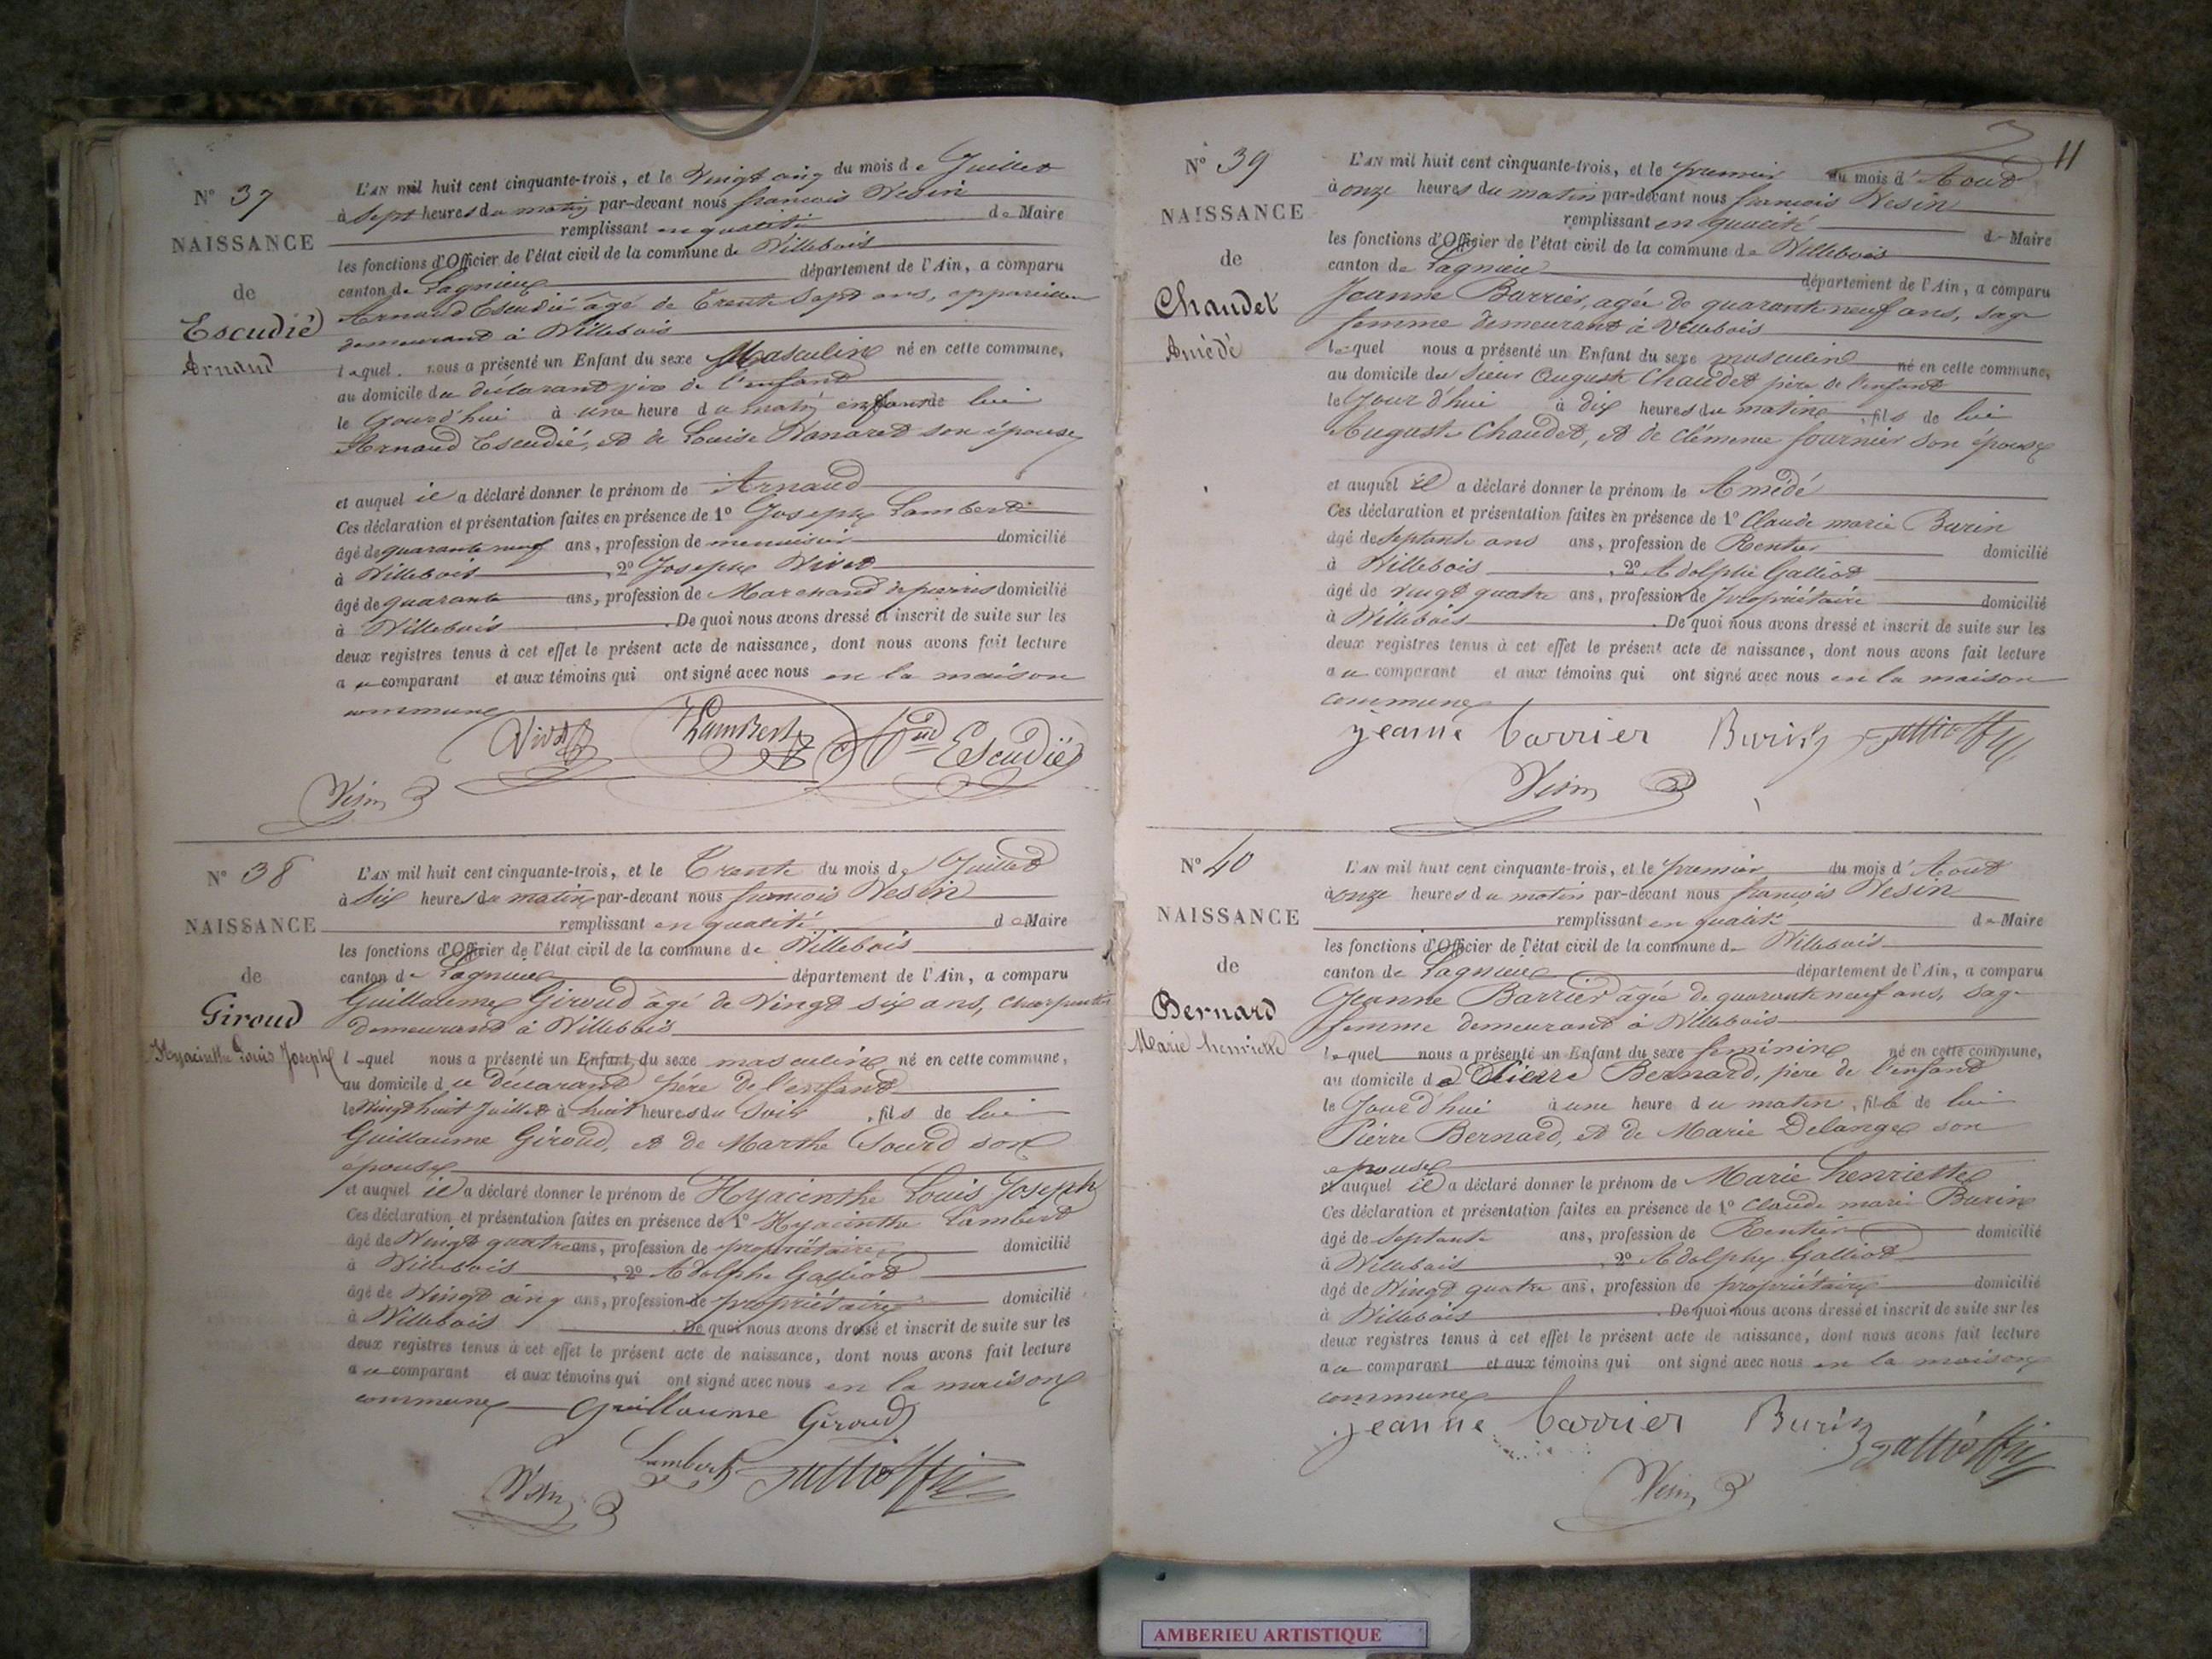 N° 37
NAISSANCE
de
Escudié
Arnaud
L'AN mil huit cent cinquante-trois, et le Vingt cinq du mois de Juillet
à Sept heures du matin par-devant nous françois Vesin
remplissant en qualité de Maire
les fonctions d'Officier de l'état civil de la commune de Villebois
canton de Lagnieu département de l'Ain, a comparu
Arnaud Escudié âgé de Trente Sept ans, appareilleur
demeurant à Villebois
lequel nous a présenté un Enfant du sexe Masculin né en cette commune,
au domicile du déclarant père de l'enfant
le Jourd'hui à une heure du matin de lui
Arnaud Escudié, et de Louise son épouse
et auquel il a déclaré donner le prénom de Arnaud
Ces déclaration et présentation faites en présence de 1° Joseph Lambert
âgé de quarante neuf ans, profession de menuisier domicilié
à Villebois, 2° Joseph Vivet
âgé de quarante ans, profession de Marchand de pierres domicilié
à Villebois. De quoi nous avons dressé et inscrit de suite sur les
deux registres tenus à cet effet le présent acte de naissance, dont nous avons fait lecture
au comparant et aux témoins qui ont signé avec nous en la maison
commune
Lambert Escudié
Vesin
N° 38
NAISSANCE
de
Giroud
Hyacinthe Louis Joseph
L'AN mil huit cent cinquante-trois, et le Trente du mois de Juillet
à Six heures du matin par-devant nous françois Vesin
remplissant en qualité de Maire
les fonctions d'Officier de l'état civil de la commune de Villebois
canton de Lagnieu département de l'Ain, a comparu
Guillaume Giroud âgé de Vingt six ans, charpentier
demeurant à Villebois
lequel nous a présenté un Enfant du sexe masculin né en cette commune,
au domicile du déclarant père de l'enfant
le Vingt huit Juillet à huit heures du Soir, fils de lui
Guillaume Giroud, et de Marthe Sourd son
épouse
et auquel il a déclaré donner le prénom de Hyacinthe Louis Joseph
Ces déclaration et présentation faites en présence de 1° Hyacinthe Lambert
âgé de Vingt quatre ans, profession de propriétaire domicilié
à Villebois, 2° Adolphe Galliot
âgé de Vingt cinq ans, profession de propriétaire domicilié
à Villebois. De quoi nous avons dressé et inscrit de suite sur les
deux registres tenus à cet effet le présent acte de naissance, dont nous avons fait lecture
au comparant et aux témoins qui ont signé avec nous en la maison
commune Guillaume Giroud
Lambert
Vesin
11
N° 39
NAISSANCE
de
Chaudet
Amédé
L'AN mil huit cent cinquante-trois, et le premier du mois d'Aout
à onze heures du matin par-devant nous françois Vesin
remplissant en qualité de Maire
les fonctions d'Officier de l'état civil de la commune de Villebois
canton de Lagnieu département de l'Ain, a comparu
Jeanne Barrier, agée de quarante neuf ans, sage
femme demeurant à Villebois
lequel nous a présenté un Enfant du sexe masculin né en cette commune,
au domicile du Sieur Auguste Chaudet père de l'enfant
le Jour d'hui à dix heures du matin, fils de lui
Auguste Chaudet, et de Clémence fournier son épouse
et auquel il a déclaré donner le prénom de Amédé
Ces déclaration et présentation faites en présence de 1° Claude marie Burin
âgé de Septante ans ans, profession de Rentier domicilié
à Villebois, 2° Adolphe Galliot
âgé de vingt quatre ans, profession de propriétaire domicilié
à Villebois. De quoi nous avons dressé et inscrit de suite sur les
deux registres tenus à cet effet le présent acte de naissance, dont nous avons fait lecture
au comparant et aux témoins qui ont signé avec nous en la maison
commune
jeanne barrier Burin
Vesin
N° 40
NAISSANCE
de
Bernard
Marie henriette
L'AN mil huit cent cinquante-trois, et le premier du mois d'Août
à onze heures du matin par-devant nous françois Vesin
remplissant en qualité de Maire
les fonctions d'Officier de l'état civil de la commune de Villebois
canton de Lagnieu département de l'Ain, a comparu
Jeanne Barrier âgée de quarante neuf ans, sage
femme demeurant à Villebois
lequel nous a présenté un Enfant du sexe féminin né en cette commune,
au domicile de Pierre Bernard, père de l'enfant
le Jour d'hui à une heure du matin, fille de lui
Pierre Bernard, et de Marie Delange son
épouse
et auquel il a déclaré donner le prénom de Marie henriette
Ces déclaration et présentation faites en présence de 1° Claude marie Burin
âgé de Septante ans, profession de Rentier domicilié
à Villebois, 2° Adolphe Galliot
âgé de Vingt quatre ans, profession de propriétaire domicilié
à Villebois. De quoi nous avons dressé et inscrit de suite sur les
deux registres tenus à cet effet le présent acte de naissance, dont nous avons fait lecture
au comparant et aux témoins qui ont signé avec nous en la maison
commune
jeanne barrier Burin
Vesin
AMBERIEU ARTISTIQUE